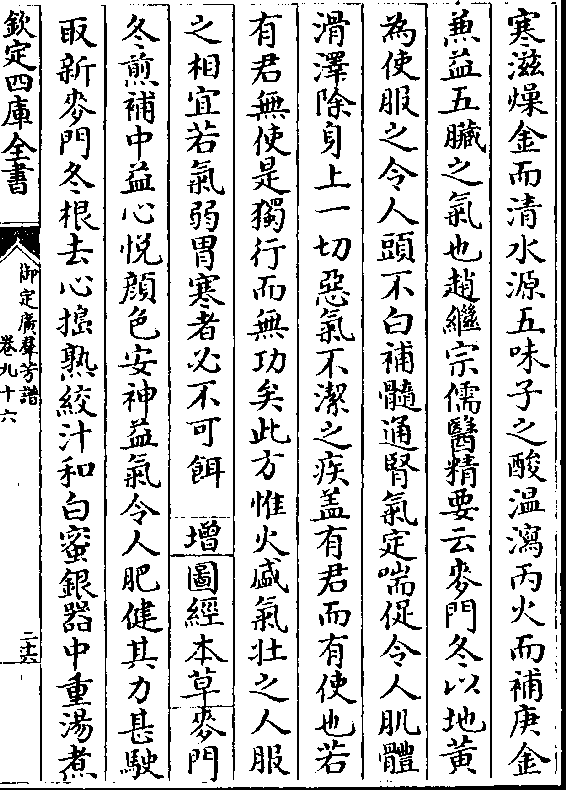 寒滋燥金而清水源五味子之酸温瀉丙火而補庚金
兼益五臟之氣也趙繼宗儒醫精要云麥門冬以地黄
為使服之令人頭不白補髓通腎氣定喘促令人肌體
滑澤除身上一切惡氣不潔之疾盖有君而有使也若
有君無使是獨行而無功矣此方惟火盛氣壯之人服
之相宜若氣弱胃寒者必不可餌 增圖經本草麥門
冬煎補中益心悦顔色安神益氣令人肥健其力甚駛
取新麥門冬根去心搗熟絞汁和白蜜銀器中重湯煮
欽定四庫全書
御定廣羣芳譜
卷九十六
二十六